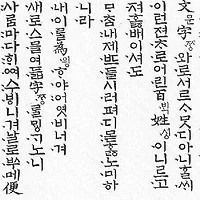 文문字ᄍᆞᆼ와로서르ᄉᆞᄆᆞᆺ디아니ᄒᆞᆯᄊᆡ
이런젼ᄎᆞ로어린百ᄇᆡᆨ姓셩이니르고
져호ᇙ배이셔도
ᄆᆞᄎᆞᆷ내제ᄠᅳ들시러펴디몯ᄒᆞᇙ노미하
니라
내이ᄅᆞᆯ爲윙ᄒᆞ야어엿비너겨
새로스믈여듧字ᄍᆞᆼᄅᆞᆯᄆᆡᇰᄀᆞ노니
사ᄅᆞᆷ마다ᄒᆡᅇᅧ수ᄫᅵ니겨날로ᄡᅮ메便